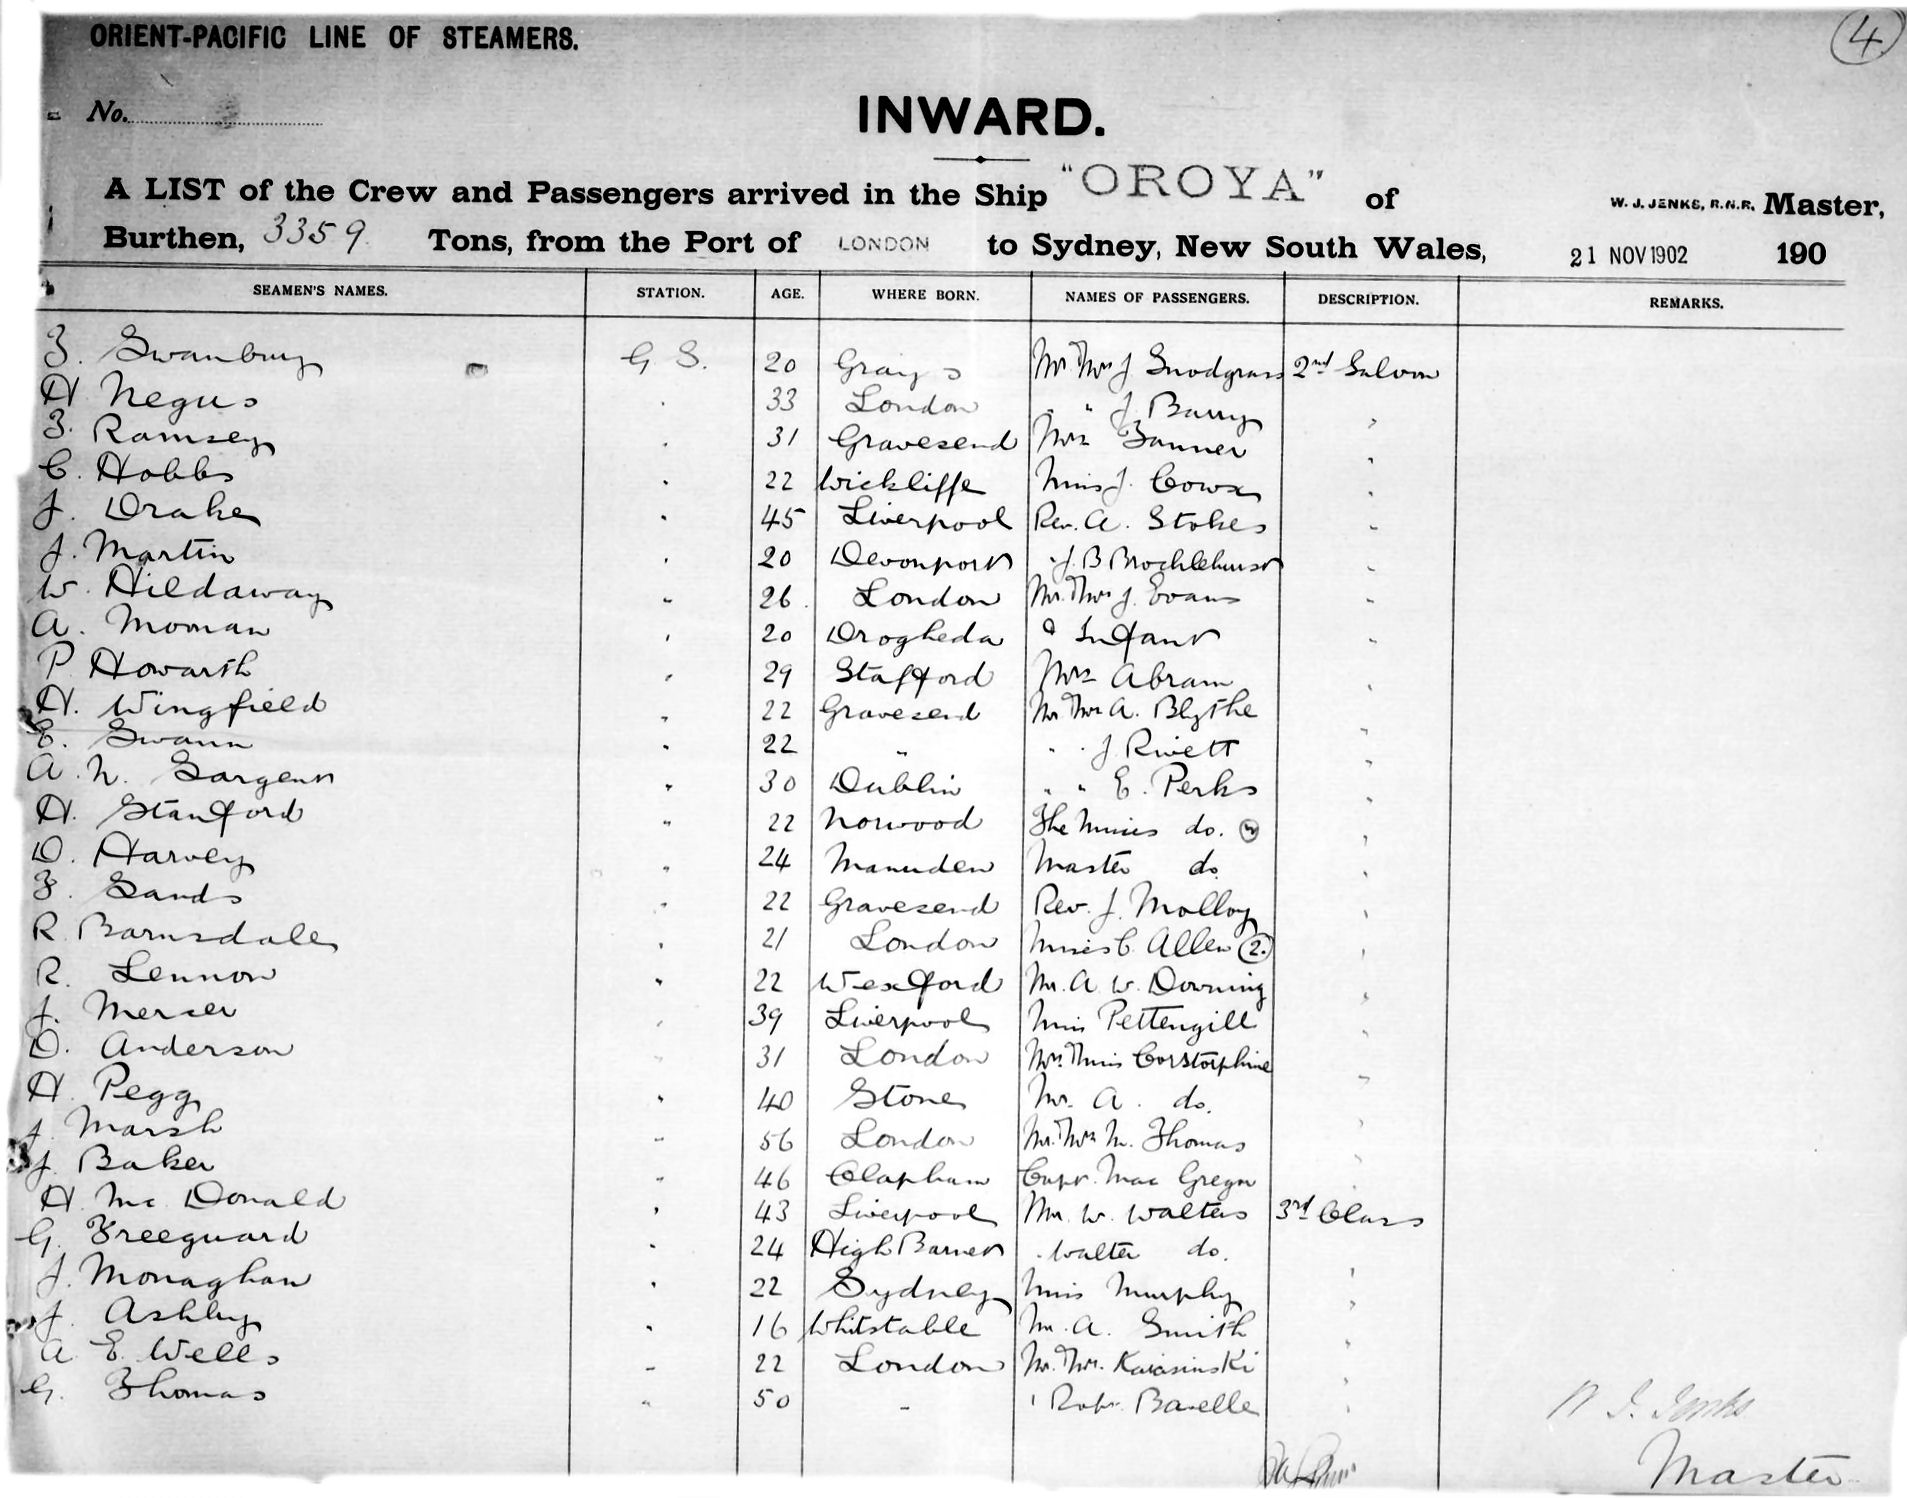 ORIENT-PACIFIC LINE OF STEAMERS.
4
No.
INWARD.
A LIST of the Crew and Passengers arrived in the Ship "OROYA" of W. J. JENKS, R.N.R. Master,
Burthen, 3359 Tons, from the Port of LONDON to Sydney, New South Wales, 21 NOV 1902 190
SEAMEN'S NAMES. STATION. AGE. WHERE BORN. NAMES OF PASSENGERS. DESCRIPTION. REMARKS.
F. Swanbury G S. 20 Grays Mr Mrs J Snodgrass 2nd Saloon
H Negus 33 London " " J. Barry
F. Ramsey 31 Gravesend Mrs Fanner
C. Hobbs 22 Wickliffe Miss J. Cowx
J. Drake 45 Liverpool Rev. A. Stokes
J. Martin 20 Devonport " J. B Brocklehurst
W. Hildaway 26 London Mr. Mrs J. Evans
A. Moonan 20 Drogheda & Infant
P Howarth 29 Stafford Mrs Abram
H. Wingfield 22 Gravesend Mr Mrs A. Blythe
E. Swann 22 " " " J. Rivett
A. N. Sargent 30 Dublin " " E. Perks
H. Stanford 22 Norwood The Misses do.
D. Harvey 24 Manuden Master do.
F. Sands 22 Gravesend Rev. J. Molloy
R Barnsdale 21 London Misses C. Allen (2.)
R. Lennon 22 Wexford Mr. A. W. Downing
J. Mercer 39 Liverpool Miss Pettengill
D. Anderson 31 London Mrs. Miss Corstorphine
H. Pegg 40 Stone Mr. A. do.
J. Marsh 56 London Mr. Mrs M. Thomas
J. Baker 46 Clapham Capt. Mac Gregor
H Mc Donald 43 Liverpool Mr. W. Walters 3rd Class
G. Freeguard 24 High Barnet " Walter do.
J. Monaghan 22 Sydney Miss Murphy
J. Ashby 16 Whitstable Mr. A. Smith
A E. Wells 22 London Mr. Mrs.
G. Thomas 50 " " Robt. Barelle
W J. Jenks
Master